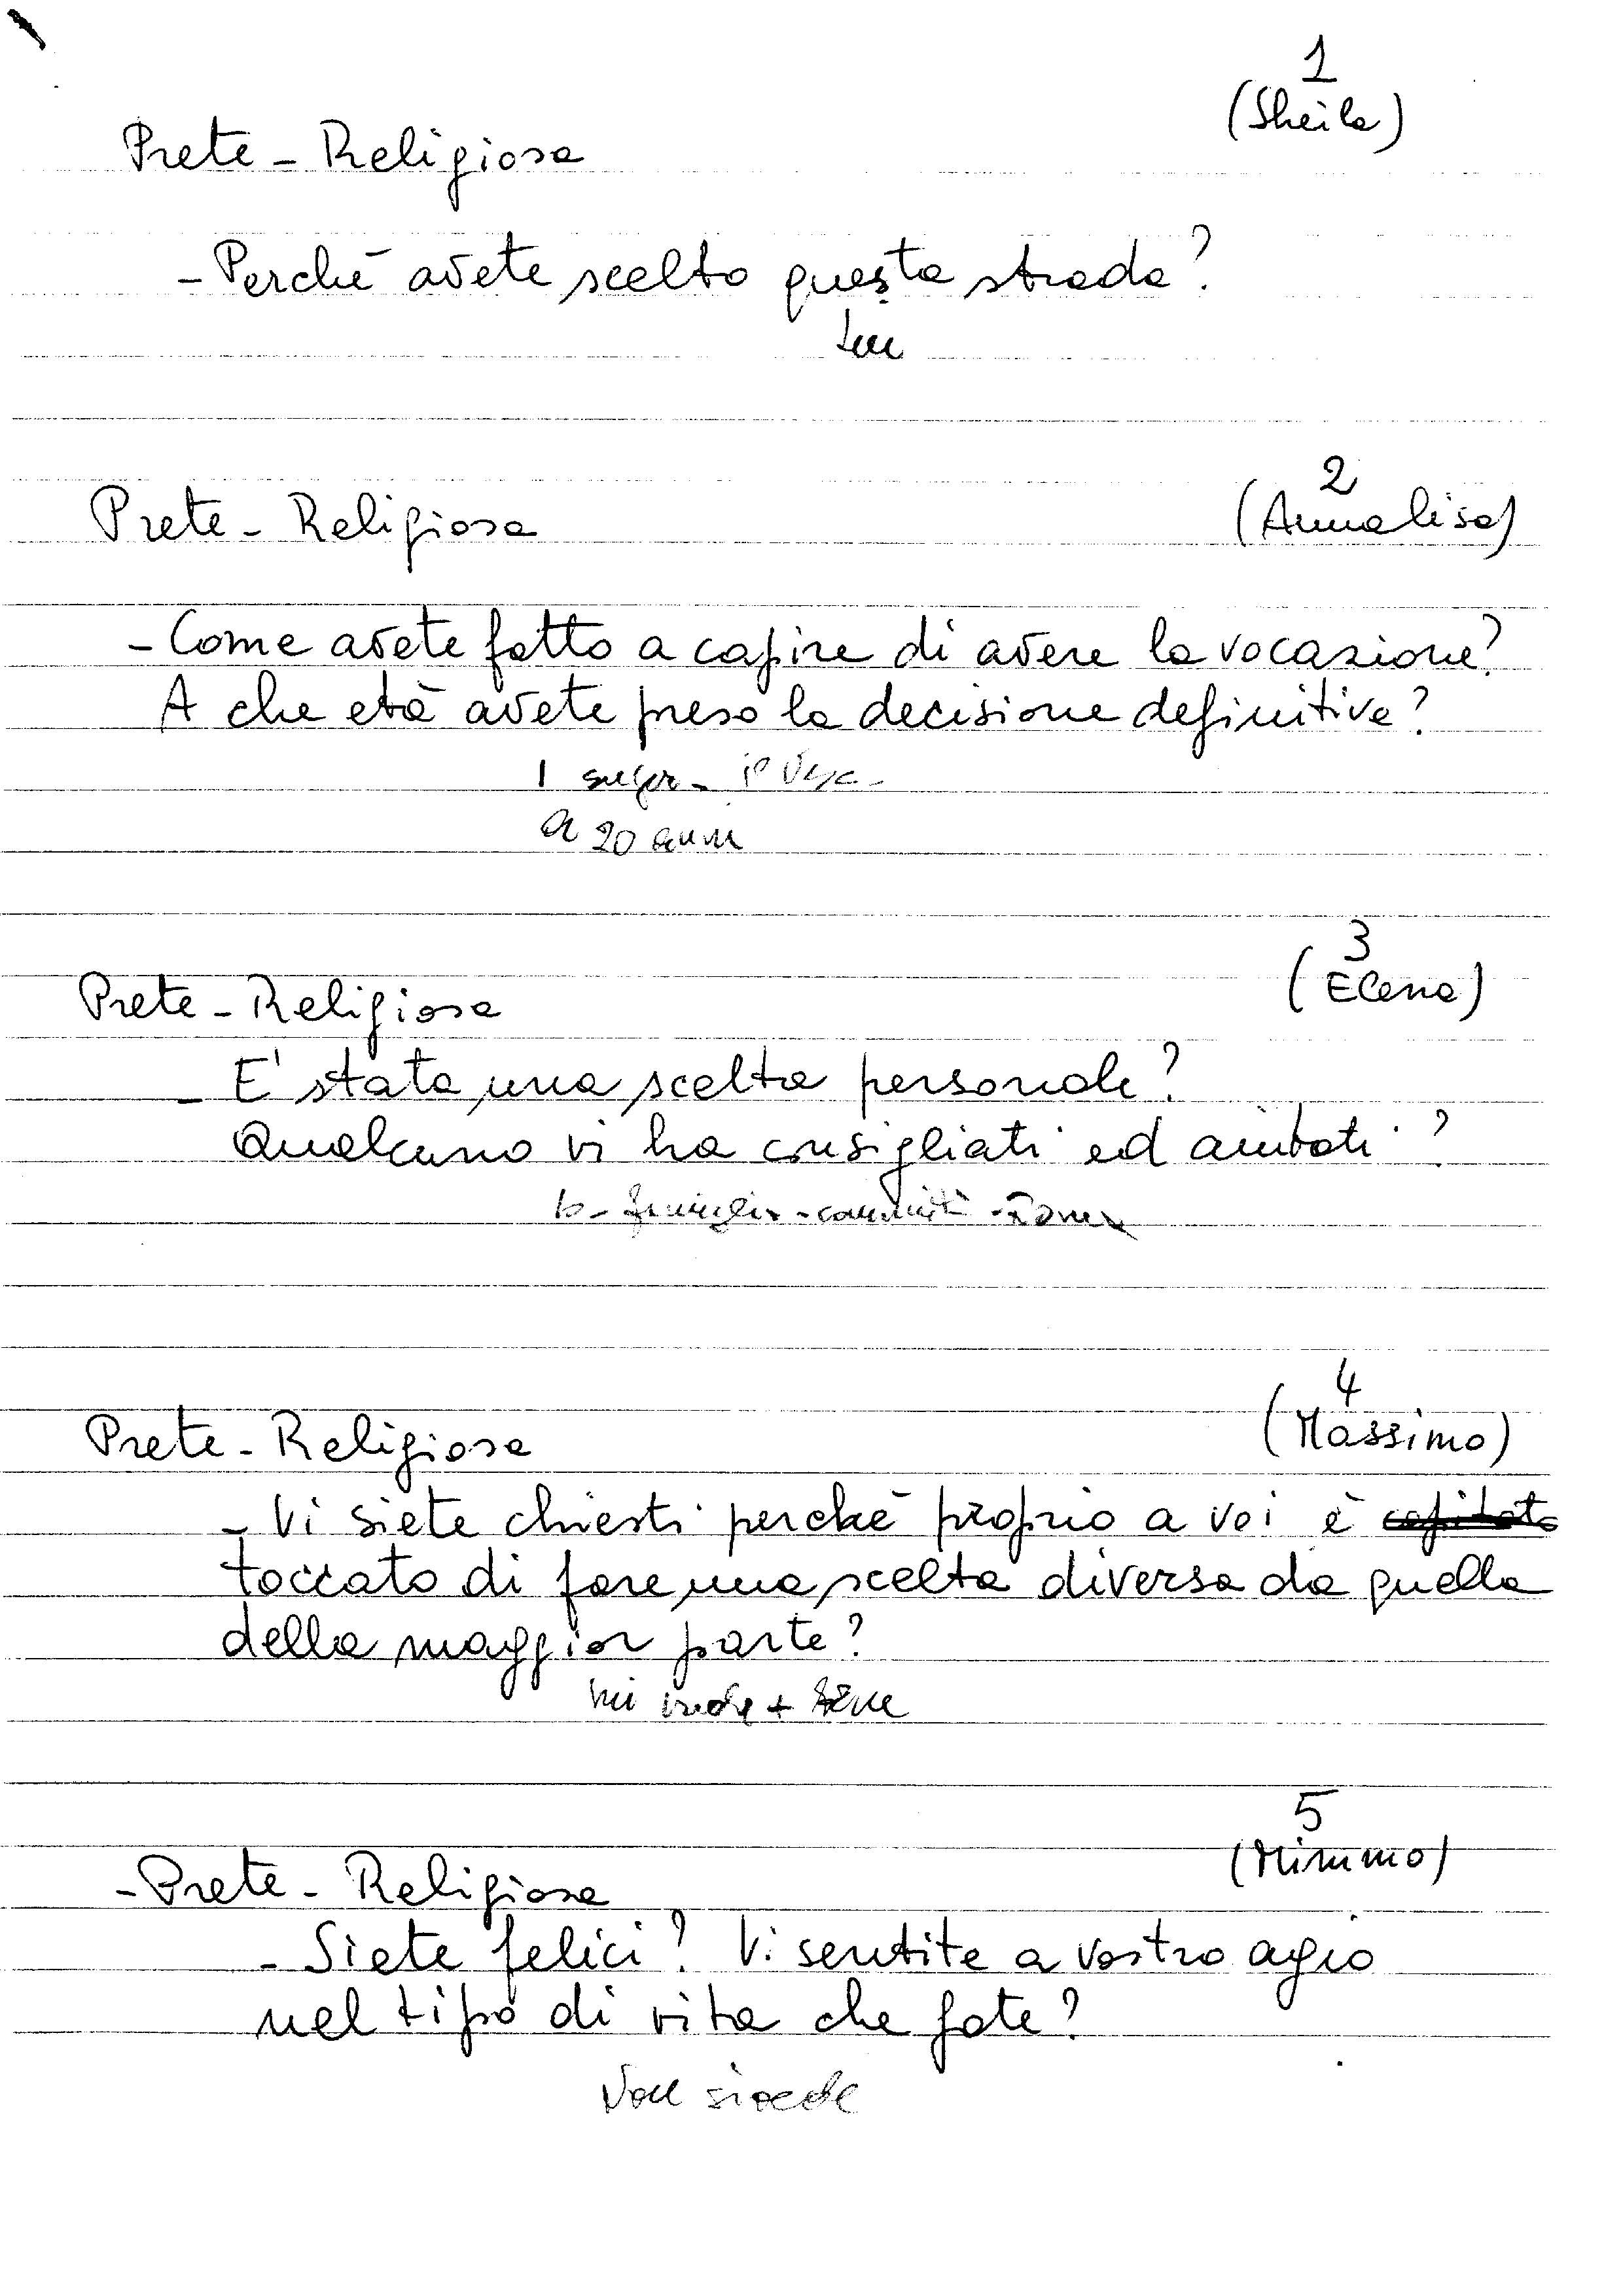 1
(Sheila)
Prete - Religiosa
- Perchè avete scelto questa strada?
2
Prete - Religiosa (Annalisa)
- Come avete fatto a capire di avere la vocazione?
A che età avete preso la decisione definitiva?
1
a 20 anni
3
Prete - Religiosa (Elena)
- E' stata una scelta personale?
Qualcuno vi ha consigliati ed aiutati?
famiglia - comunità
4
Prete - Religiosa (Massimo)
- Vi siete chiesti perchè proprio a voi è capitato
toccato di fare una scelta diversa da quella
della maggior parte?
5
(Mimmo)
- Prete - Religiosa
- Siete felici? Vi sentite a vostro agio
nel tipo di vita che fate?